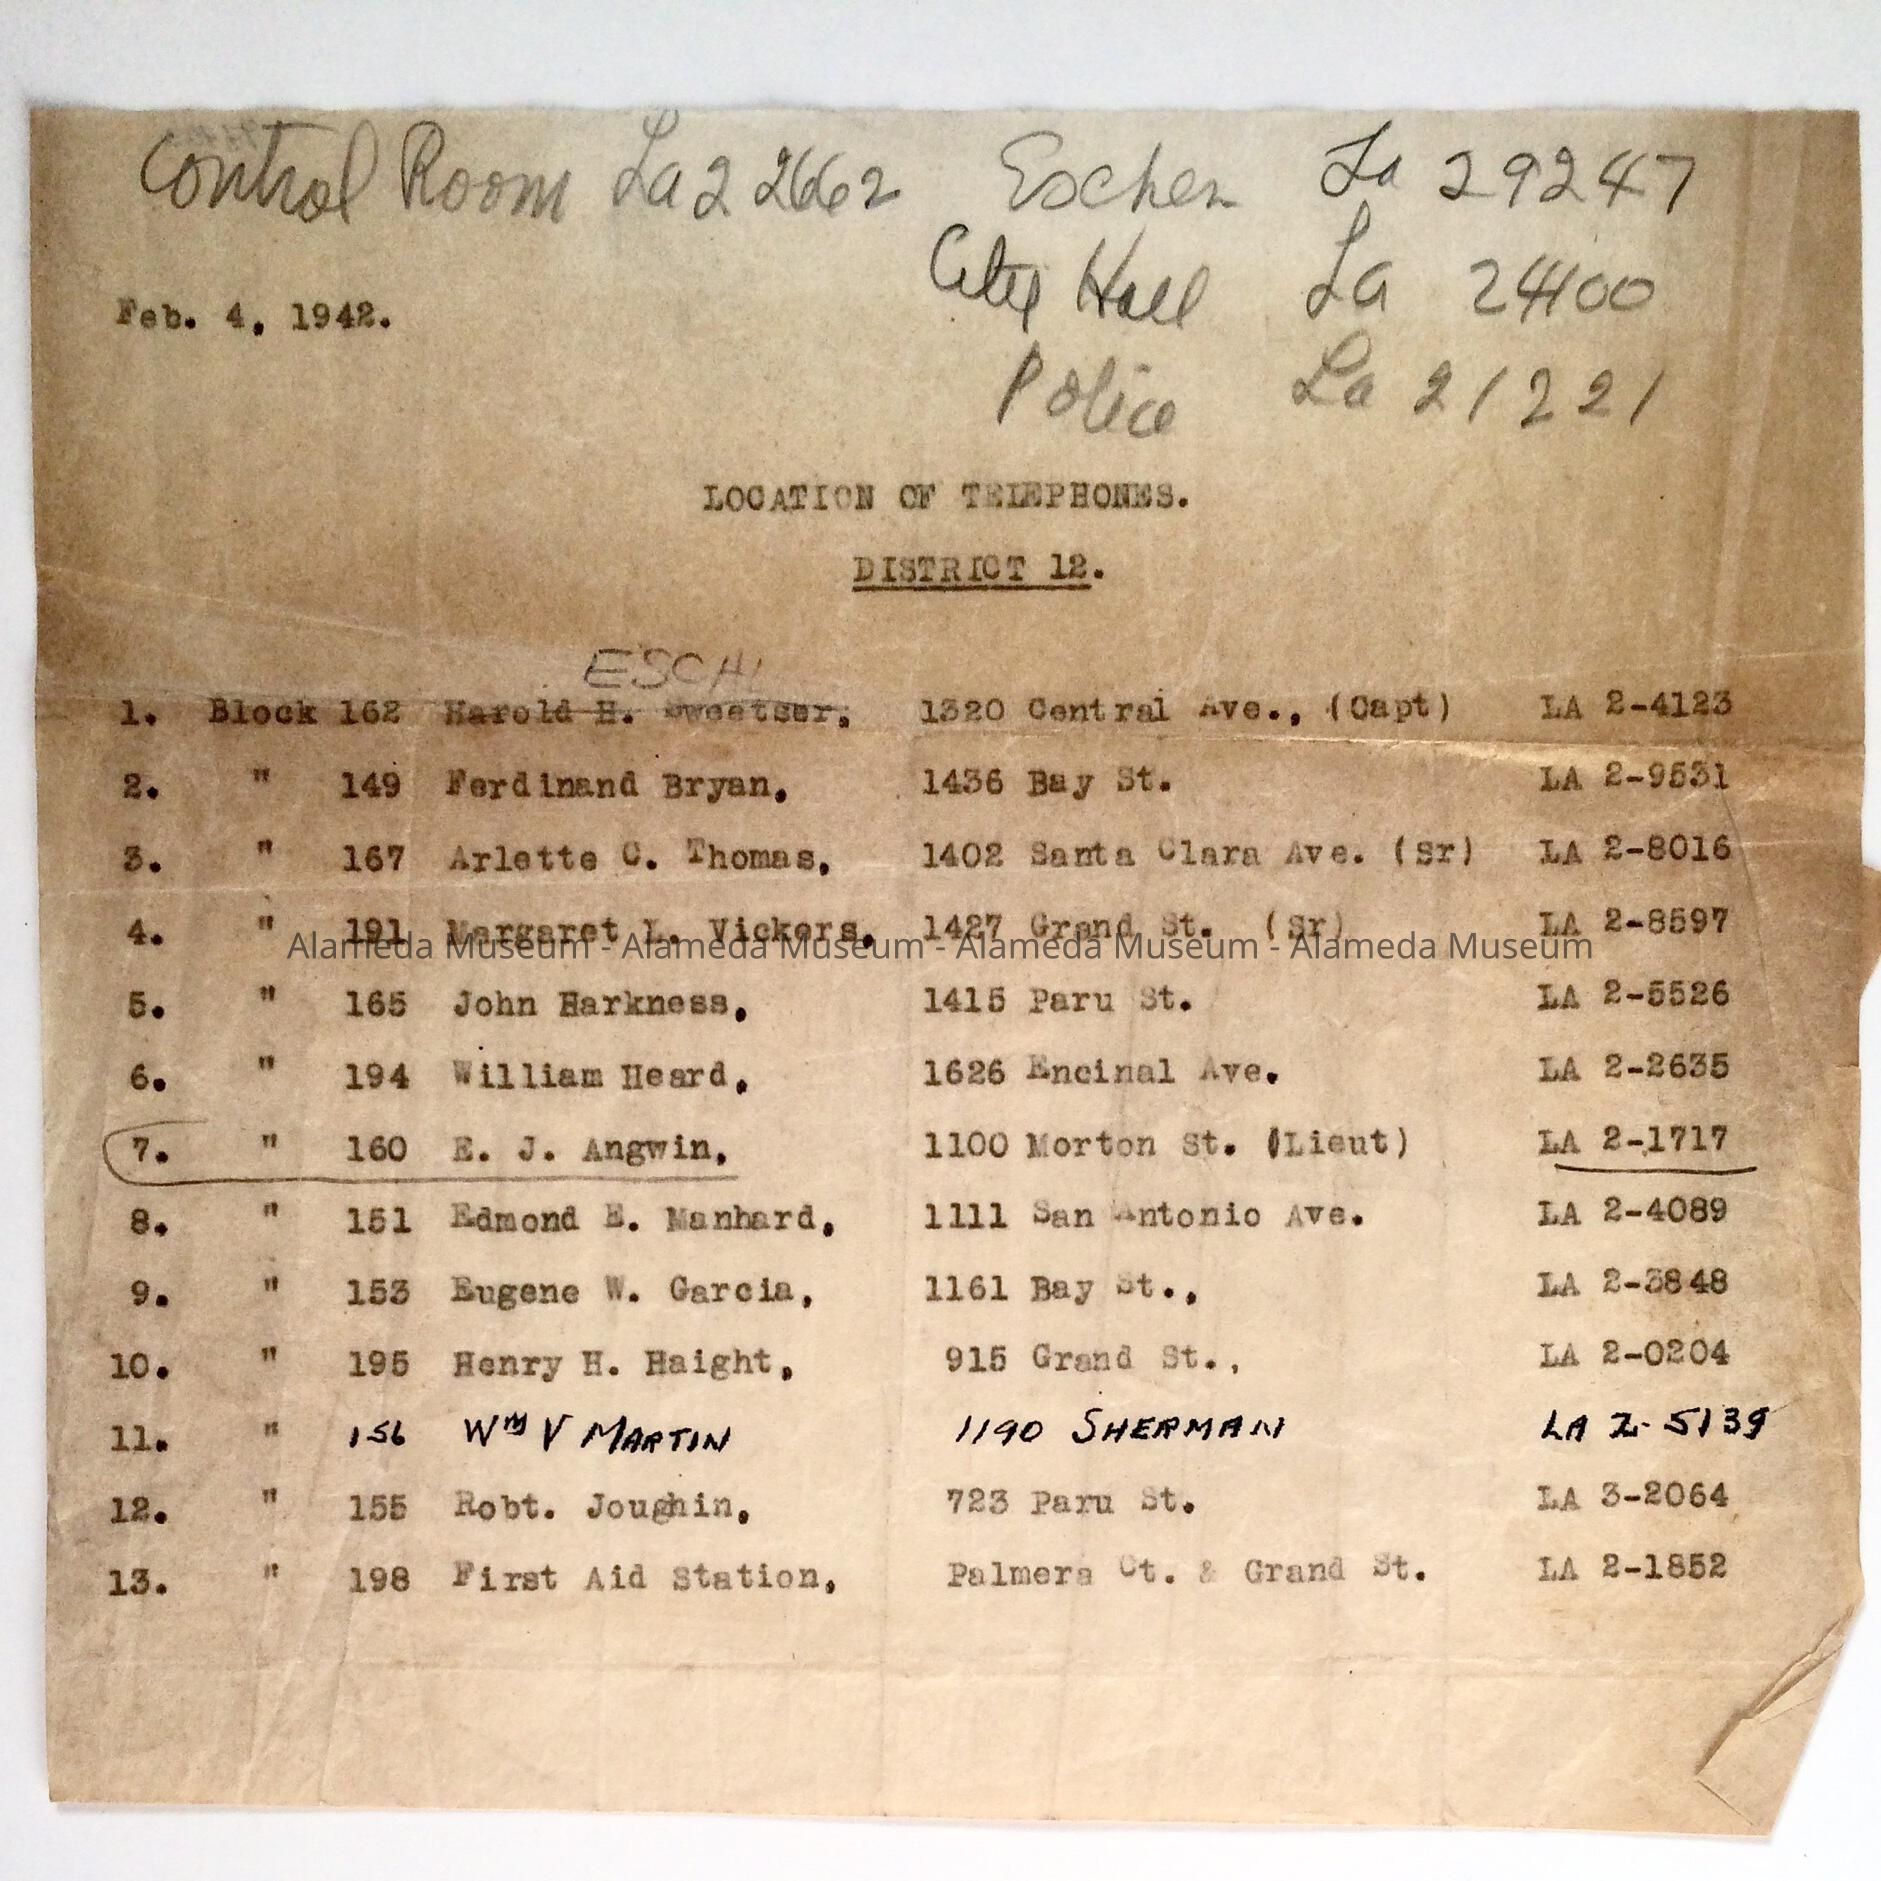 Control Room La 2 2662 Escher La 29247
City Hall La 24100
Feb. 4, 1942.
Police La 21221
LOCATION OF TELEPHONES.
DISTRICT 12.
ESCH
1. Block 162 Harold H. Sweetser, 1320 Central Ave., (Capt) LA 2-4123
2. " 149 Ferdinand Bryan, 1436 Bay St. LA 2-9531
3. " 167 Arlette C. Thomas, 1402 Santa Clara Ave. (Sr) LA 2-8016
4. " 191 Margaret L. Vickers, 1427 Grand St. (Sr) LA 2-8597
Alameda Museum - Alameda Museum - Alameda Museum - Alameda Museum
5. " 165 John Harkness, 1415 Paru St. LA 2-5526
6. " 194 William Heard, 1626 Encinal Ave. LA 2-2635
7. " 160 E. J. Angwin, 1100 Morton St. (Lieut) LA 2-1717
8. " 151 Edmond E. Manhard, 1111 San Antonio Ave. LA 2-4089
9. " 153 Eugene W. Garcia, 1161 Bay St., LA 2-3848
10. " 195 Henry H. Haight, 915 Grand St., LA 2-0204
11. " 156 Wm V MARTIN 1190 SHERMAN LA 2-5139
12. " 155 Robt. Joughin, 723 Paru St. LA 3-2064
13. " 198 First Aid Station, Palmera Ct. & Grand St. LA 2-1852